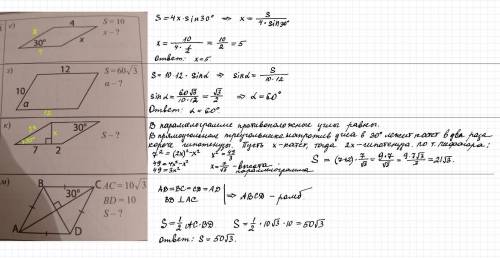 е)
4
30°
x
S = 10
x – ?
S = 4x · sin 30° ⇒ x = S / (4 · sin 30°)
x = 10 / (4 · 1/2) = 10/2 = 5
Ответ: x = 5
12
10
a
12
S = 60√3
a – ?
S = 10 · 12 · sin α ⇒ sin α = S / (10 · 12)
sin α = 60√3 / (10 · 12) = √3/2 ⇒ α = 60°
Ответ: α = 60°
к)
30°
x
7 2
S – ?
В параллелограмме противоположные углы равны.
В прямоугольном треугольнике напротив угла в 30° лежит катет в два раза
короче гипотенузы. Пусть x - катет, тогда 2x - гипотенуза, по т. Пифагора:
7² = (2x)² - x² x² = 49/3
49 = 4x² - x² x = 7/√3 - высота
49 = 3x² параллелограмма
S = (7+2) · 7/√3 = 9·7/√3 = 9·7√3/3 = 21√3.
м)
B
C
30°
A
D
AC = 10√3
BD = 10
S – ?
AD = BC = CD = AD
BD ⊥ AC ⇒ ABCD - ромб
S = 1/2 AC·BD. S = 1/2 · 10√3 · 10 = 50√3
Ответ: S = 50√3.